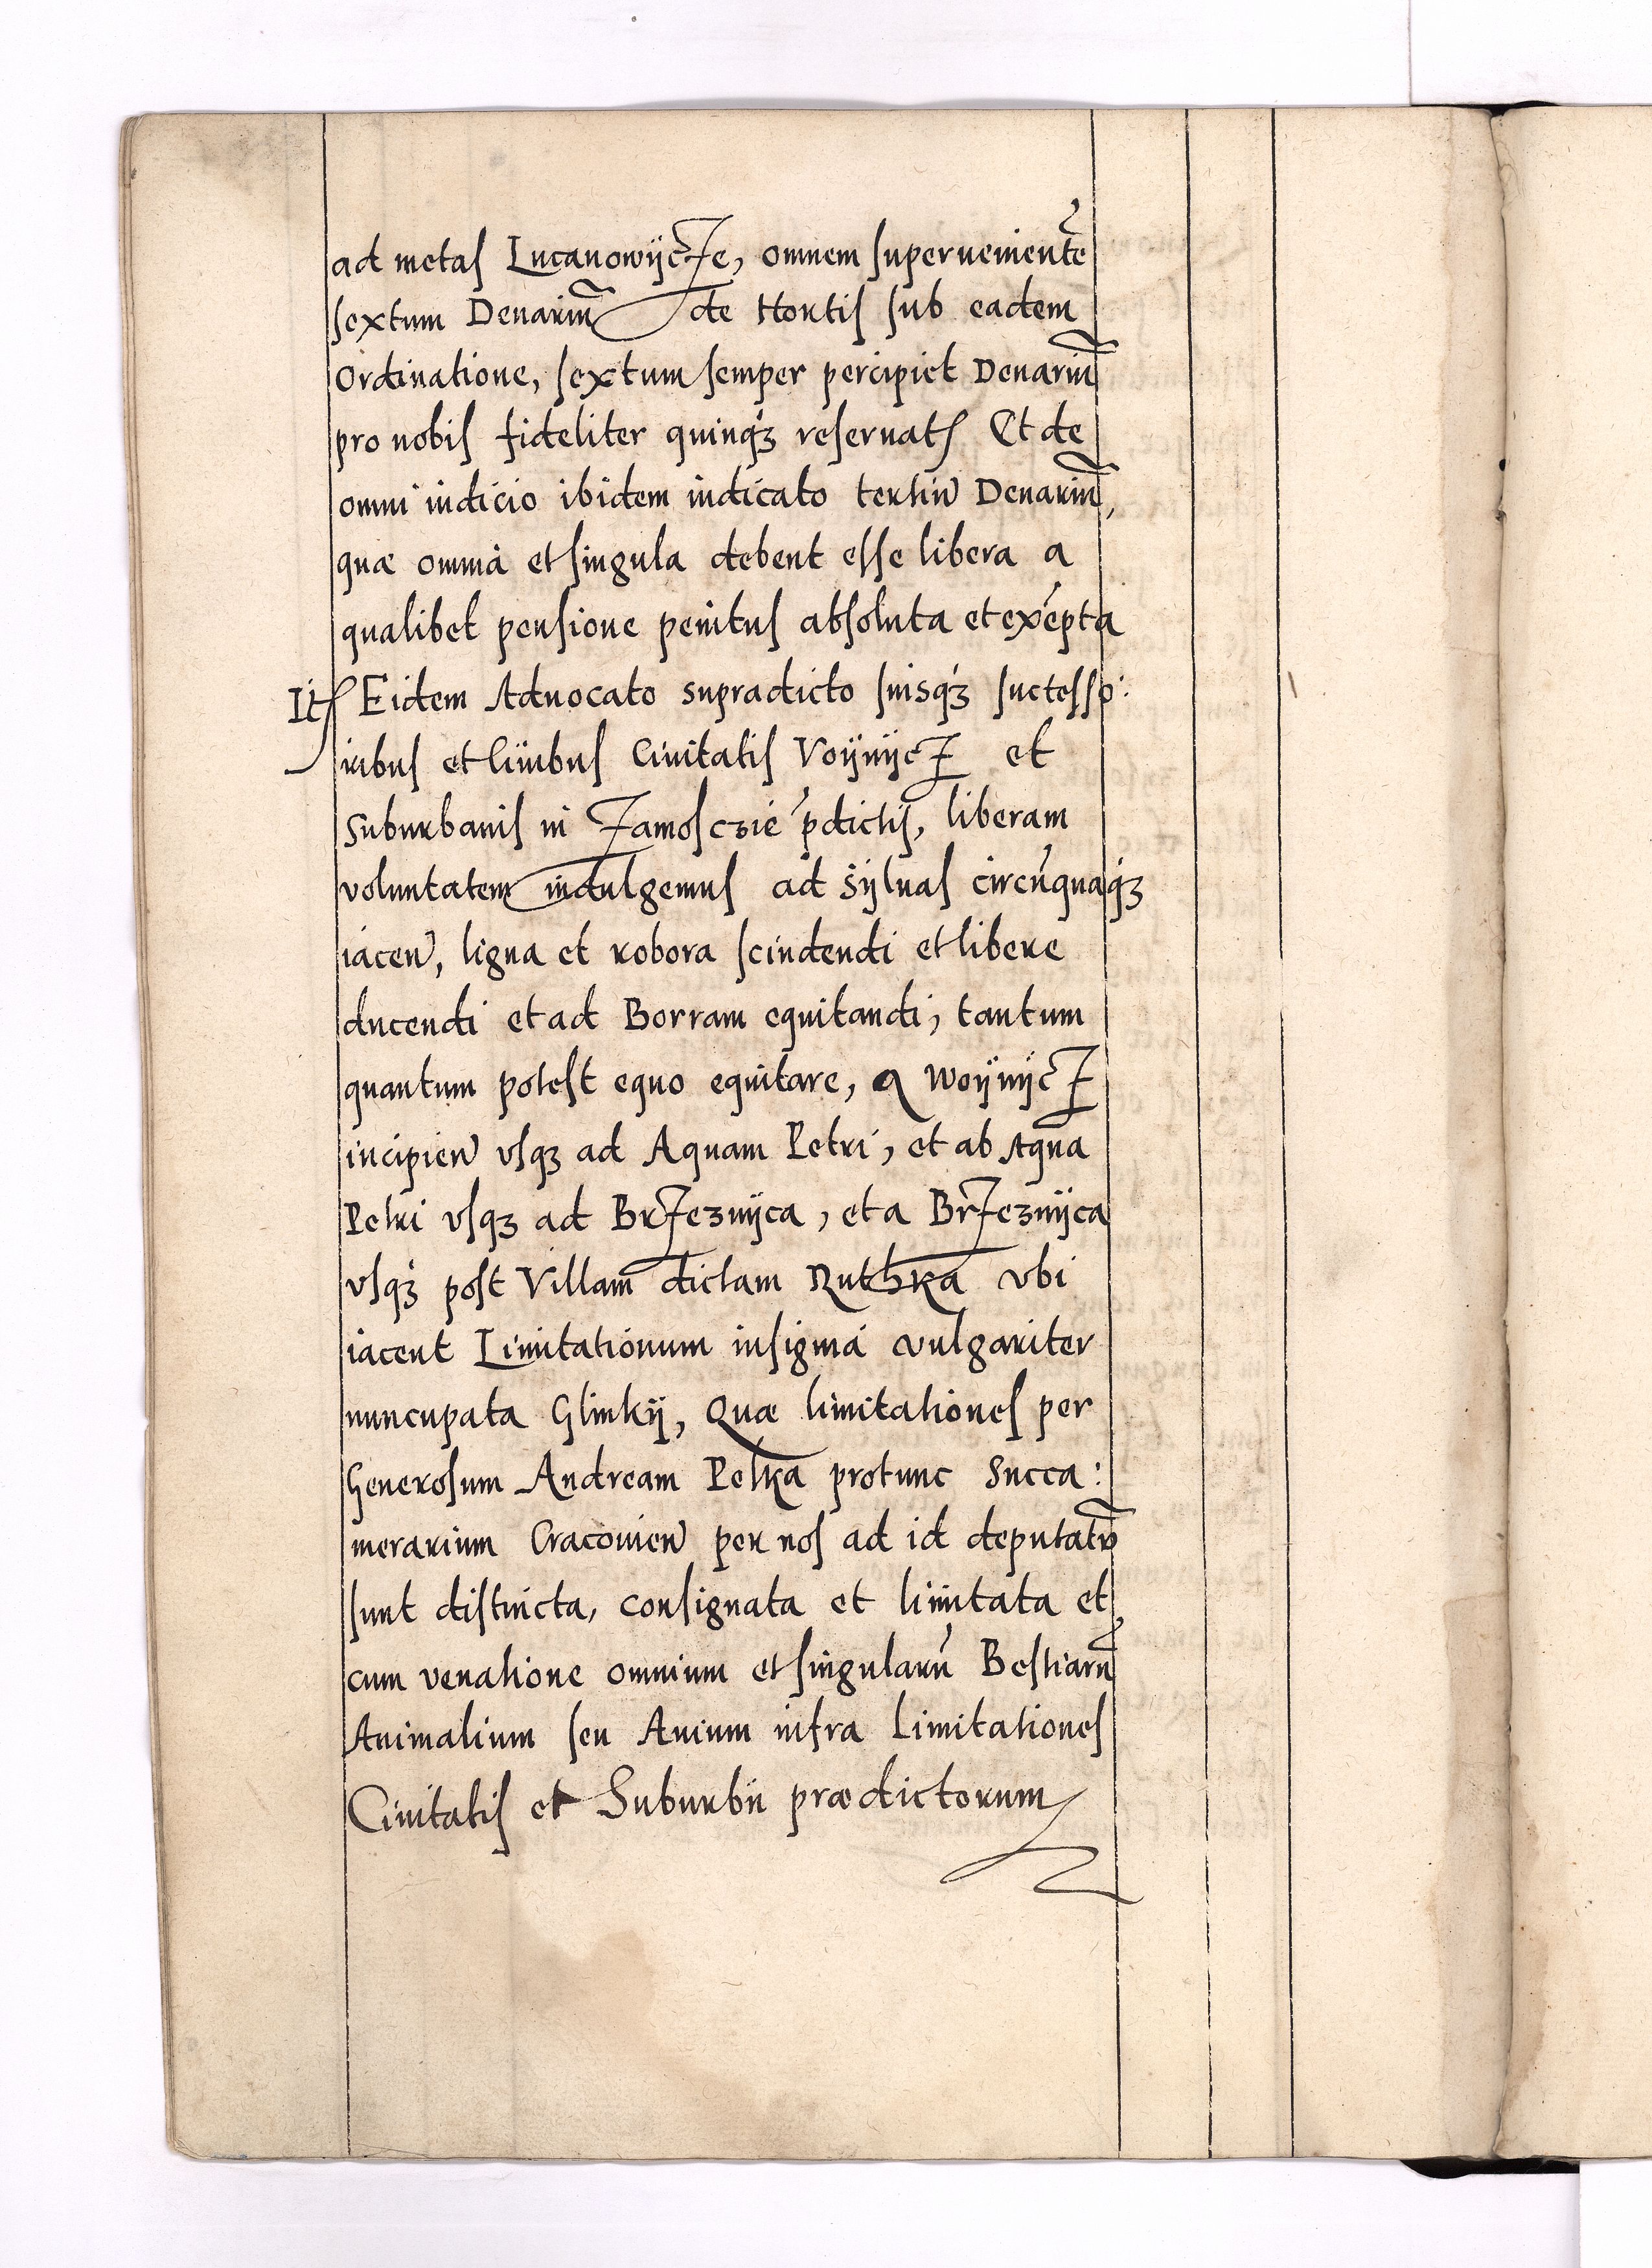 ad metas Lucanowÿcze, omnem superuenientē
sextum Denariū de Hortis sub eadem
Ordinatione, sextum semper percipiet Denariū
pro nobis fideliter quinqꝫ reseruatꝭ Et de
omni iudicio ibidem iudicato tertiū Denariū,
quæ omnia et singula debent esse libera a
qualibet pensione penitus absoluta et exēpta
Itꝭ Eidem Aduocato supradicto suisqꝫ successo:
ribus et Ciuibus Ciuitatis Voÿnÿcz et
Suburbanis in Zamosczie p̄dictis, liberam
voluntatem indulgemus ad sÿluas circūquaqꝫ
iaceñ, ligna et robora scindendi et libere
ducendi et ad Borram equitandi, tantum
quantum potest equo equitare, a Woÿnÿcz
incipieñ vsqꝫ ad Aquam Petri, et ab Aqua
Petri vsqꝫ ad Brzeznÿca, et a Brzeznÿca
vsqꝫ post Villam dictam Ruthka vbi
iacent Limitationum insignia vulgariter
nuncupata Glinkÿ, Quæ limitationes per
Generosum Andream Petka protunc Succa:
merarium Cracouieñ per nos ad id deputatū
sunt distincta, consignata et limitata et
cum venatione omnium et singularū Bestiarū
Animalium seu Auium infra Limitationes
Ciuitatis et Suburbii prædictorum